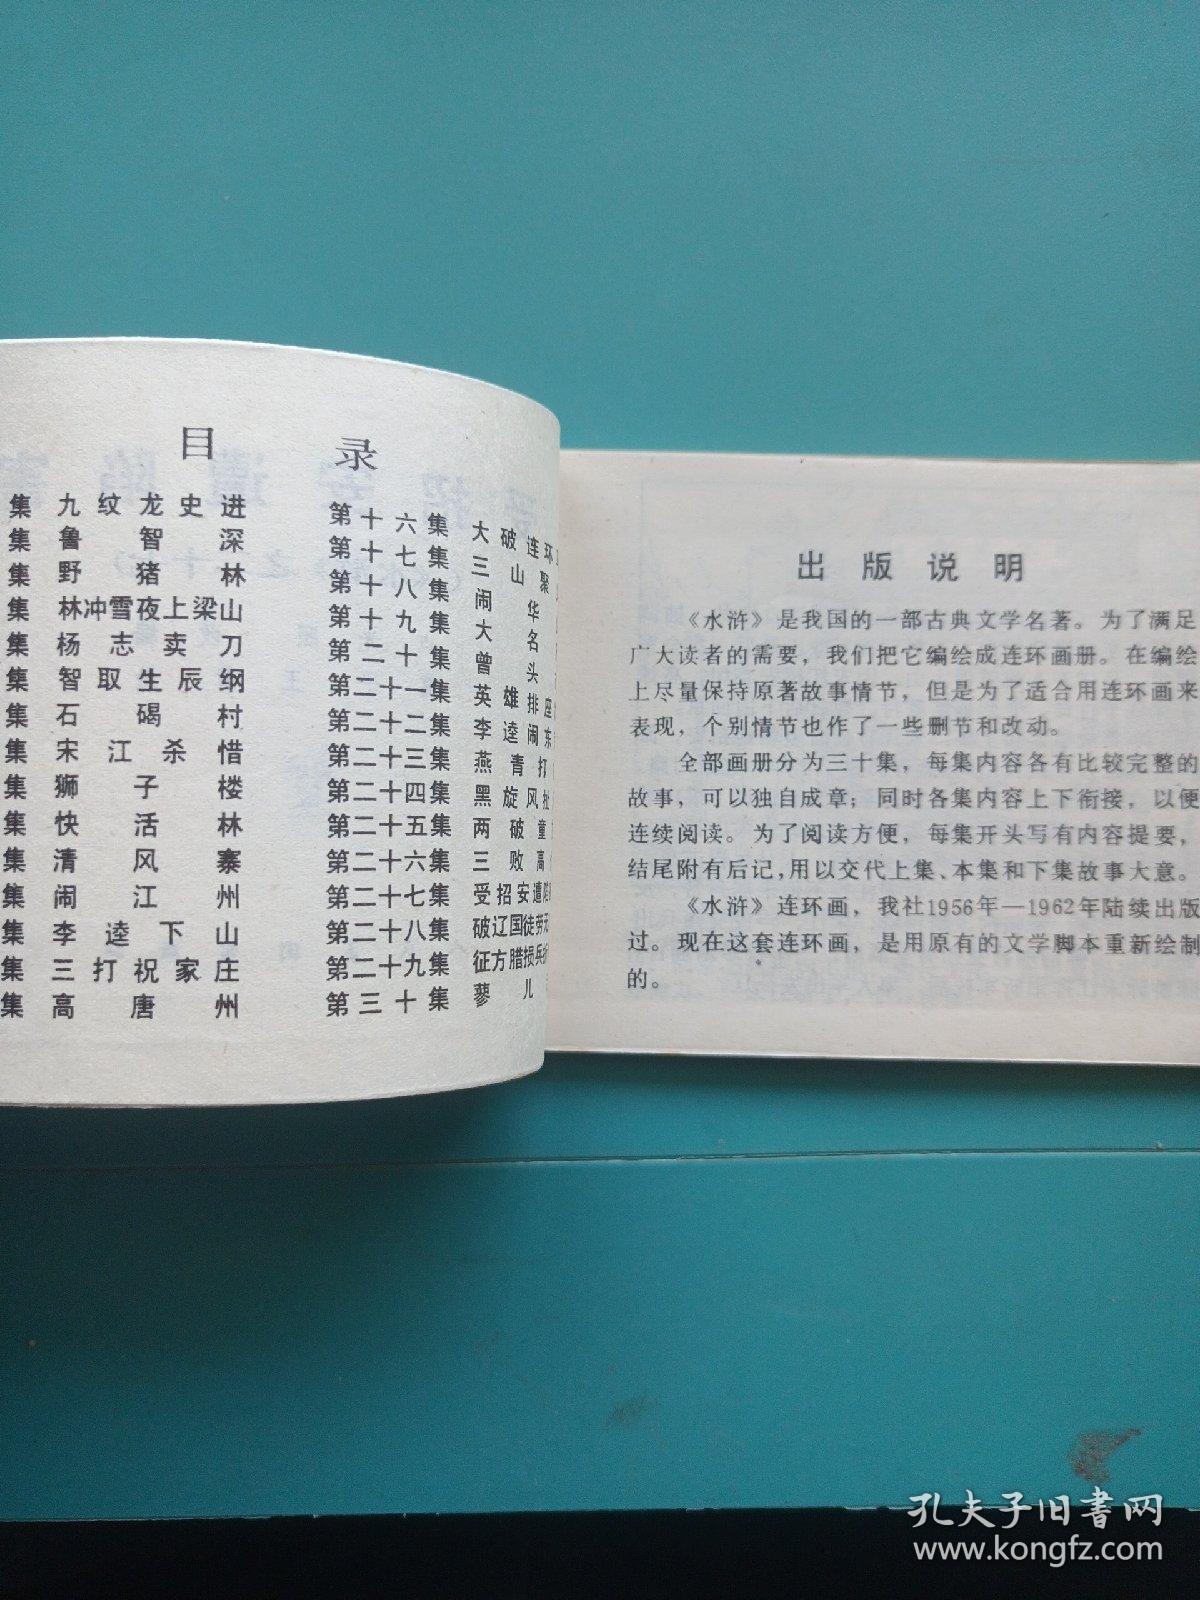 目 录
集 九纹龙史进
集 鲁智深
集 野猪林
集 林冲雪夜上梁山
集 杨志卖刀
集 智取生辰纲
集 石碣村
集 宋江杀惜
集 狮子楼
集 快活林
集 清风寨
集 闹江州
集 李逵下山
集 三打祝家庄
集 高唐州
第十六集 大破连环
第十七集 三山聚
第十八集 闹华
第十九集 大名
第二十集 曾头
第二十一集 英雄排座
第二十二集 李逵闹东
第二十三集 燕青打
第二十四集 黑旋风扯
第二十五集 两破童
第二十六集 三败高
第二十七集 受招安遭陷
第二十八集 破辽国徒劳无
第二十九集 征方腊损兵折
第三十集 蓼儿
出版说明
《水浒》是我国的一部古典文学名著。为了满足
广大读者的需要，我们把它编绘成连环画册。在编绘
上尽量保持原著故事情节，但是为了适合用连环画来
表现，个别情节也作了一些删节和改动。
全部画册分为三十集，每集内容各有比较完整的
故事，可以独自成章；同时各集内容上下衔接，以便
连续阅读。为了阅读方便，每集开头写有内容提要，
结尾附有后记，用以交代上集、本集和下集故事大意。
《水浒》连环画，我社1956年—1962年陆续出版
过。现在这套连环画，是用原有的文学脚本重新绘制
的。
孔夫子旧书网
www.kongfz.com